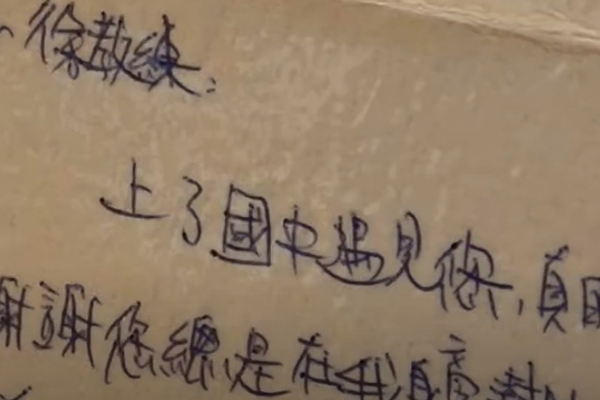 徐教練:
上了國中遇見您,真
謝謝您總是在我